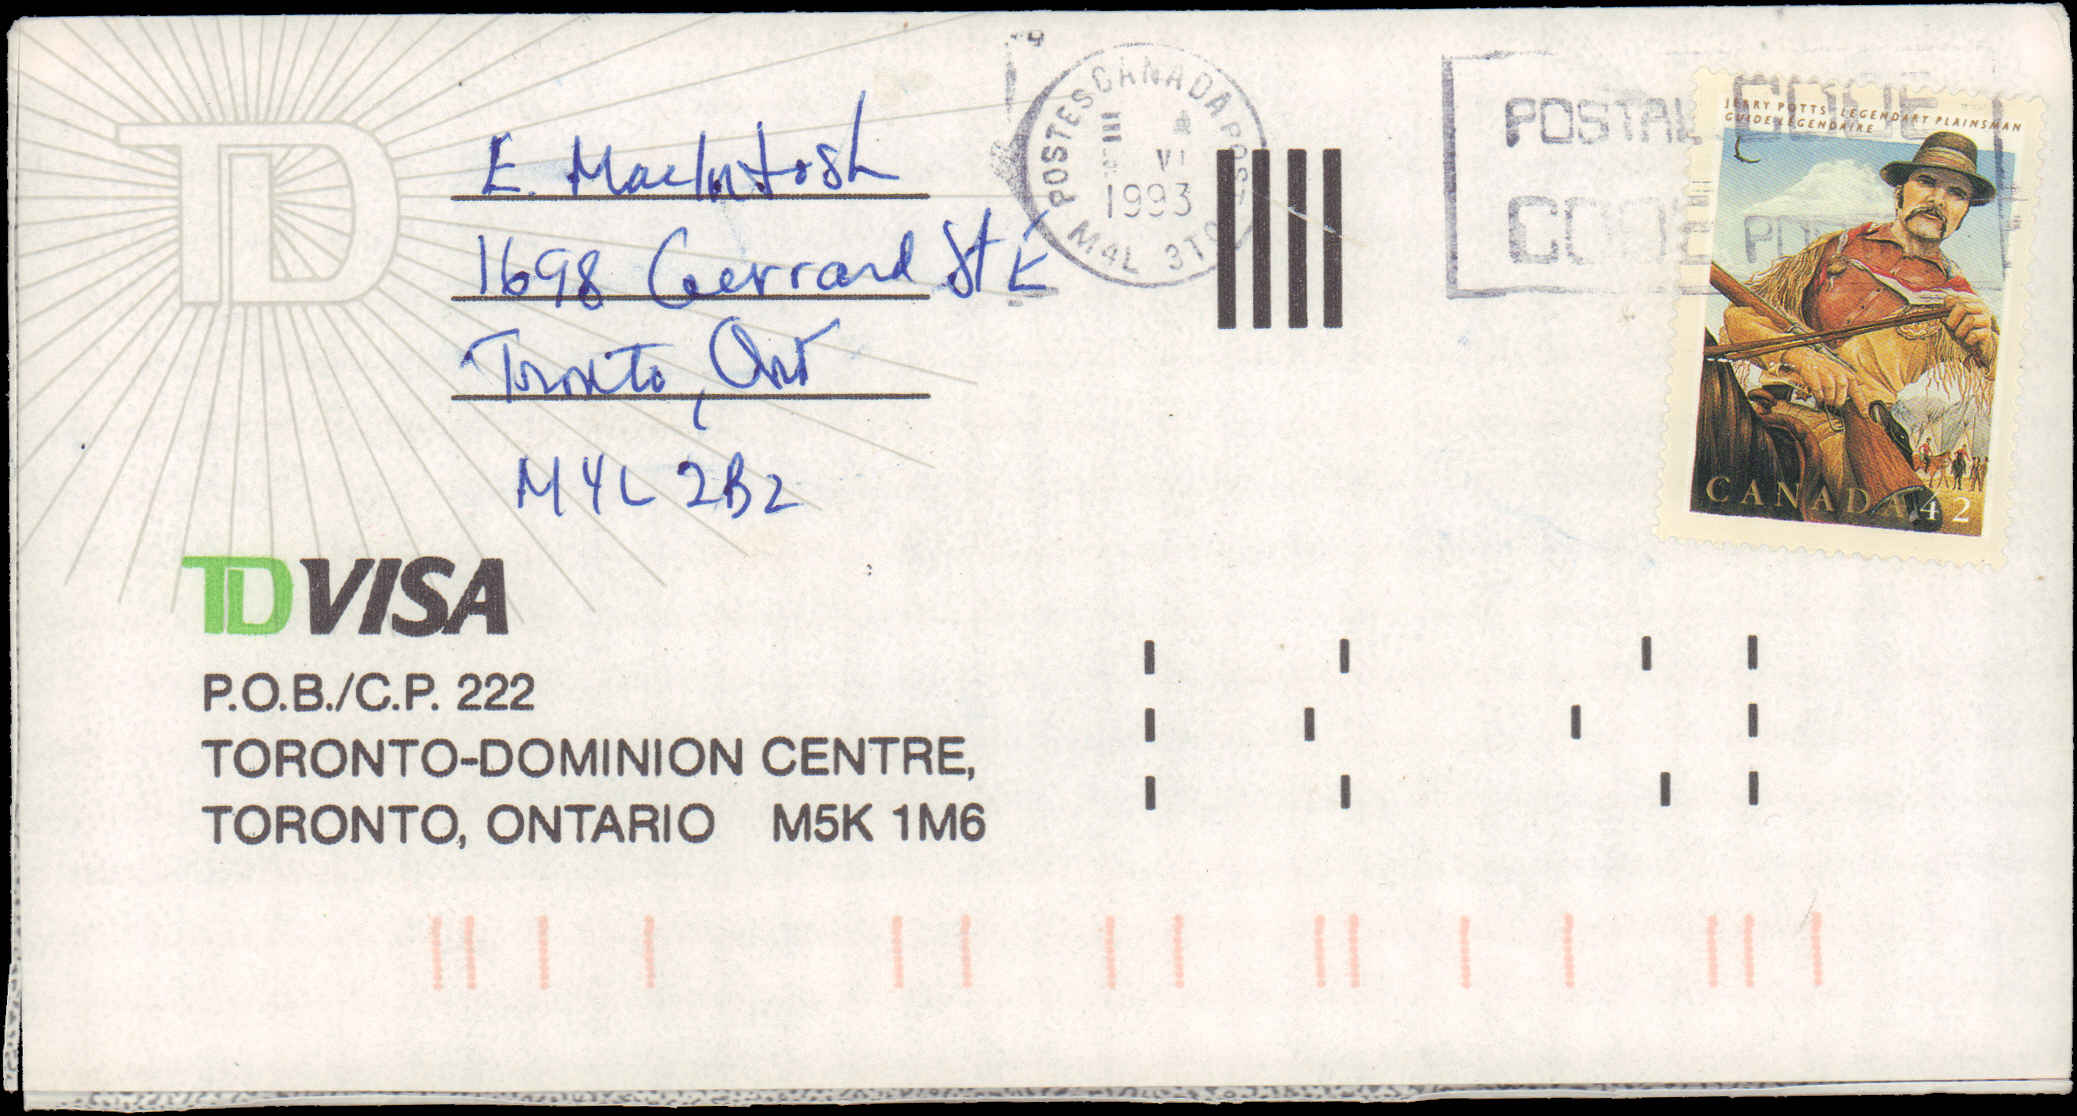 TD
E. MacIntosh
1698 Gerrard St E
Toronto, Ont
M4L 2B2
POSTES CANADA POST
VI
1993
M4L 3T0
POSTAL CODE
CODE POSTAL
JERRY POTTS LEGENDARY PLAINSMAN
GUIDE LÉGENDAIRE
CANADA 42
TD VISA
P.O.B./C.P. 222
TORONTO-DOMINION CENTRE,
TORONTO, ONTARIO M5K 1M6